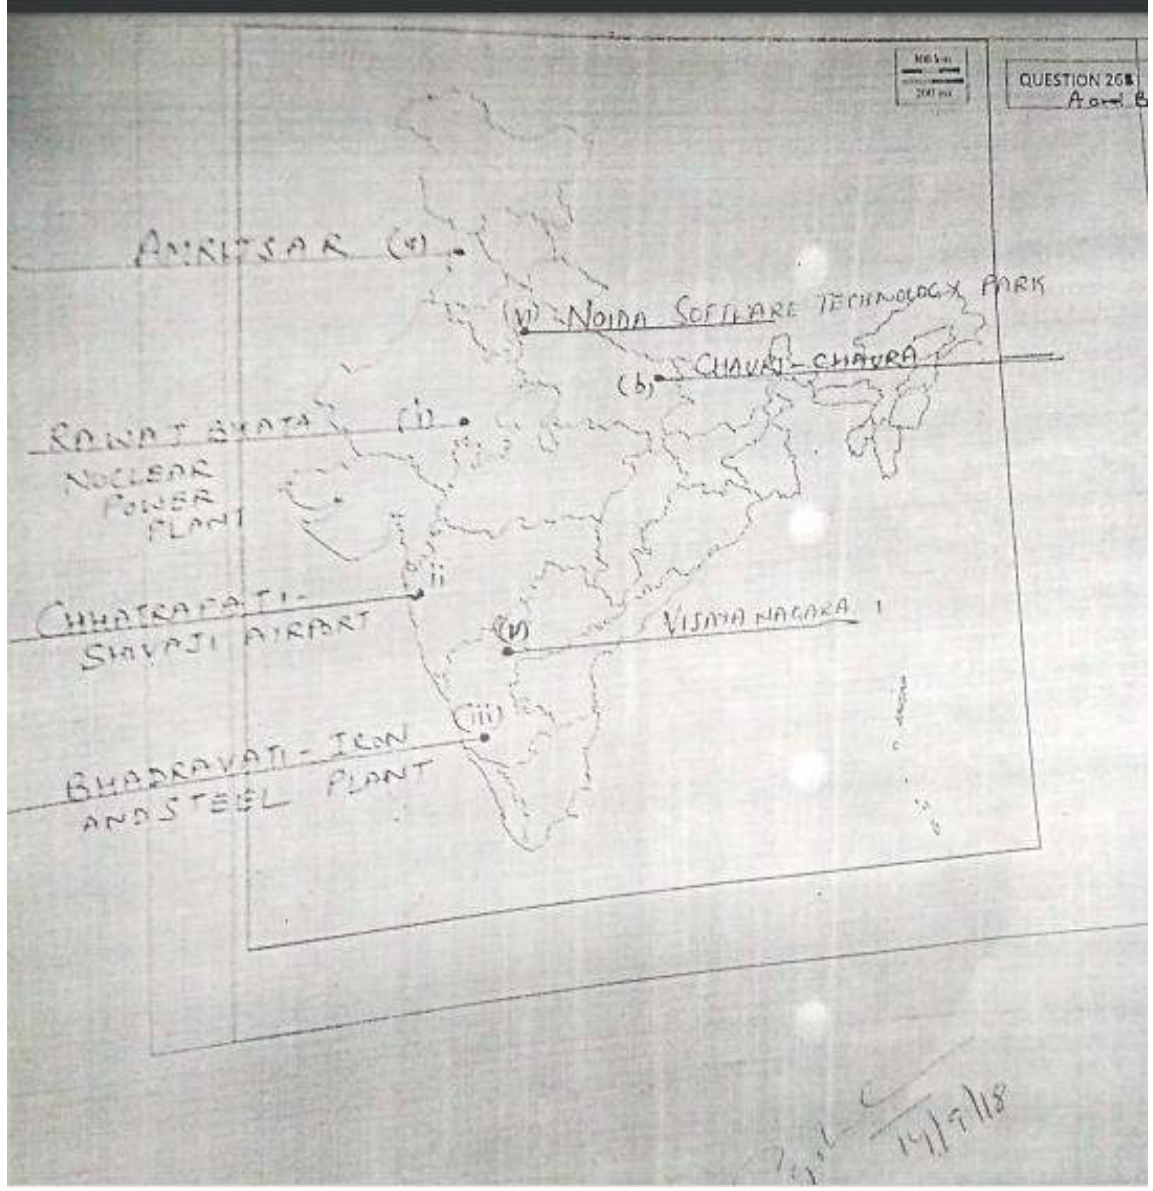 100 km
200 mi
QUESTION 26
A and B
AMRITSAR (a)
(vi) NOIDA SOFTWARE TECHNOLOGY PARK
(b) CHAURI-CHAURA
RAWAT BHATA (i)
NUCLEAR
POWER
PLANT
ii
CHHATRAPATI-
SHIVAJI AIRPORT
VIJAYANAGARA
(iii)
BHADRAVATI-IRON
AND STEEL PLANT
14/9/18